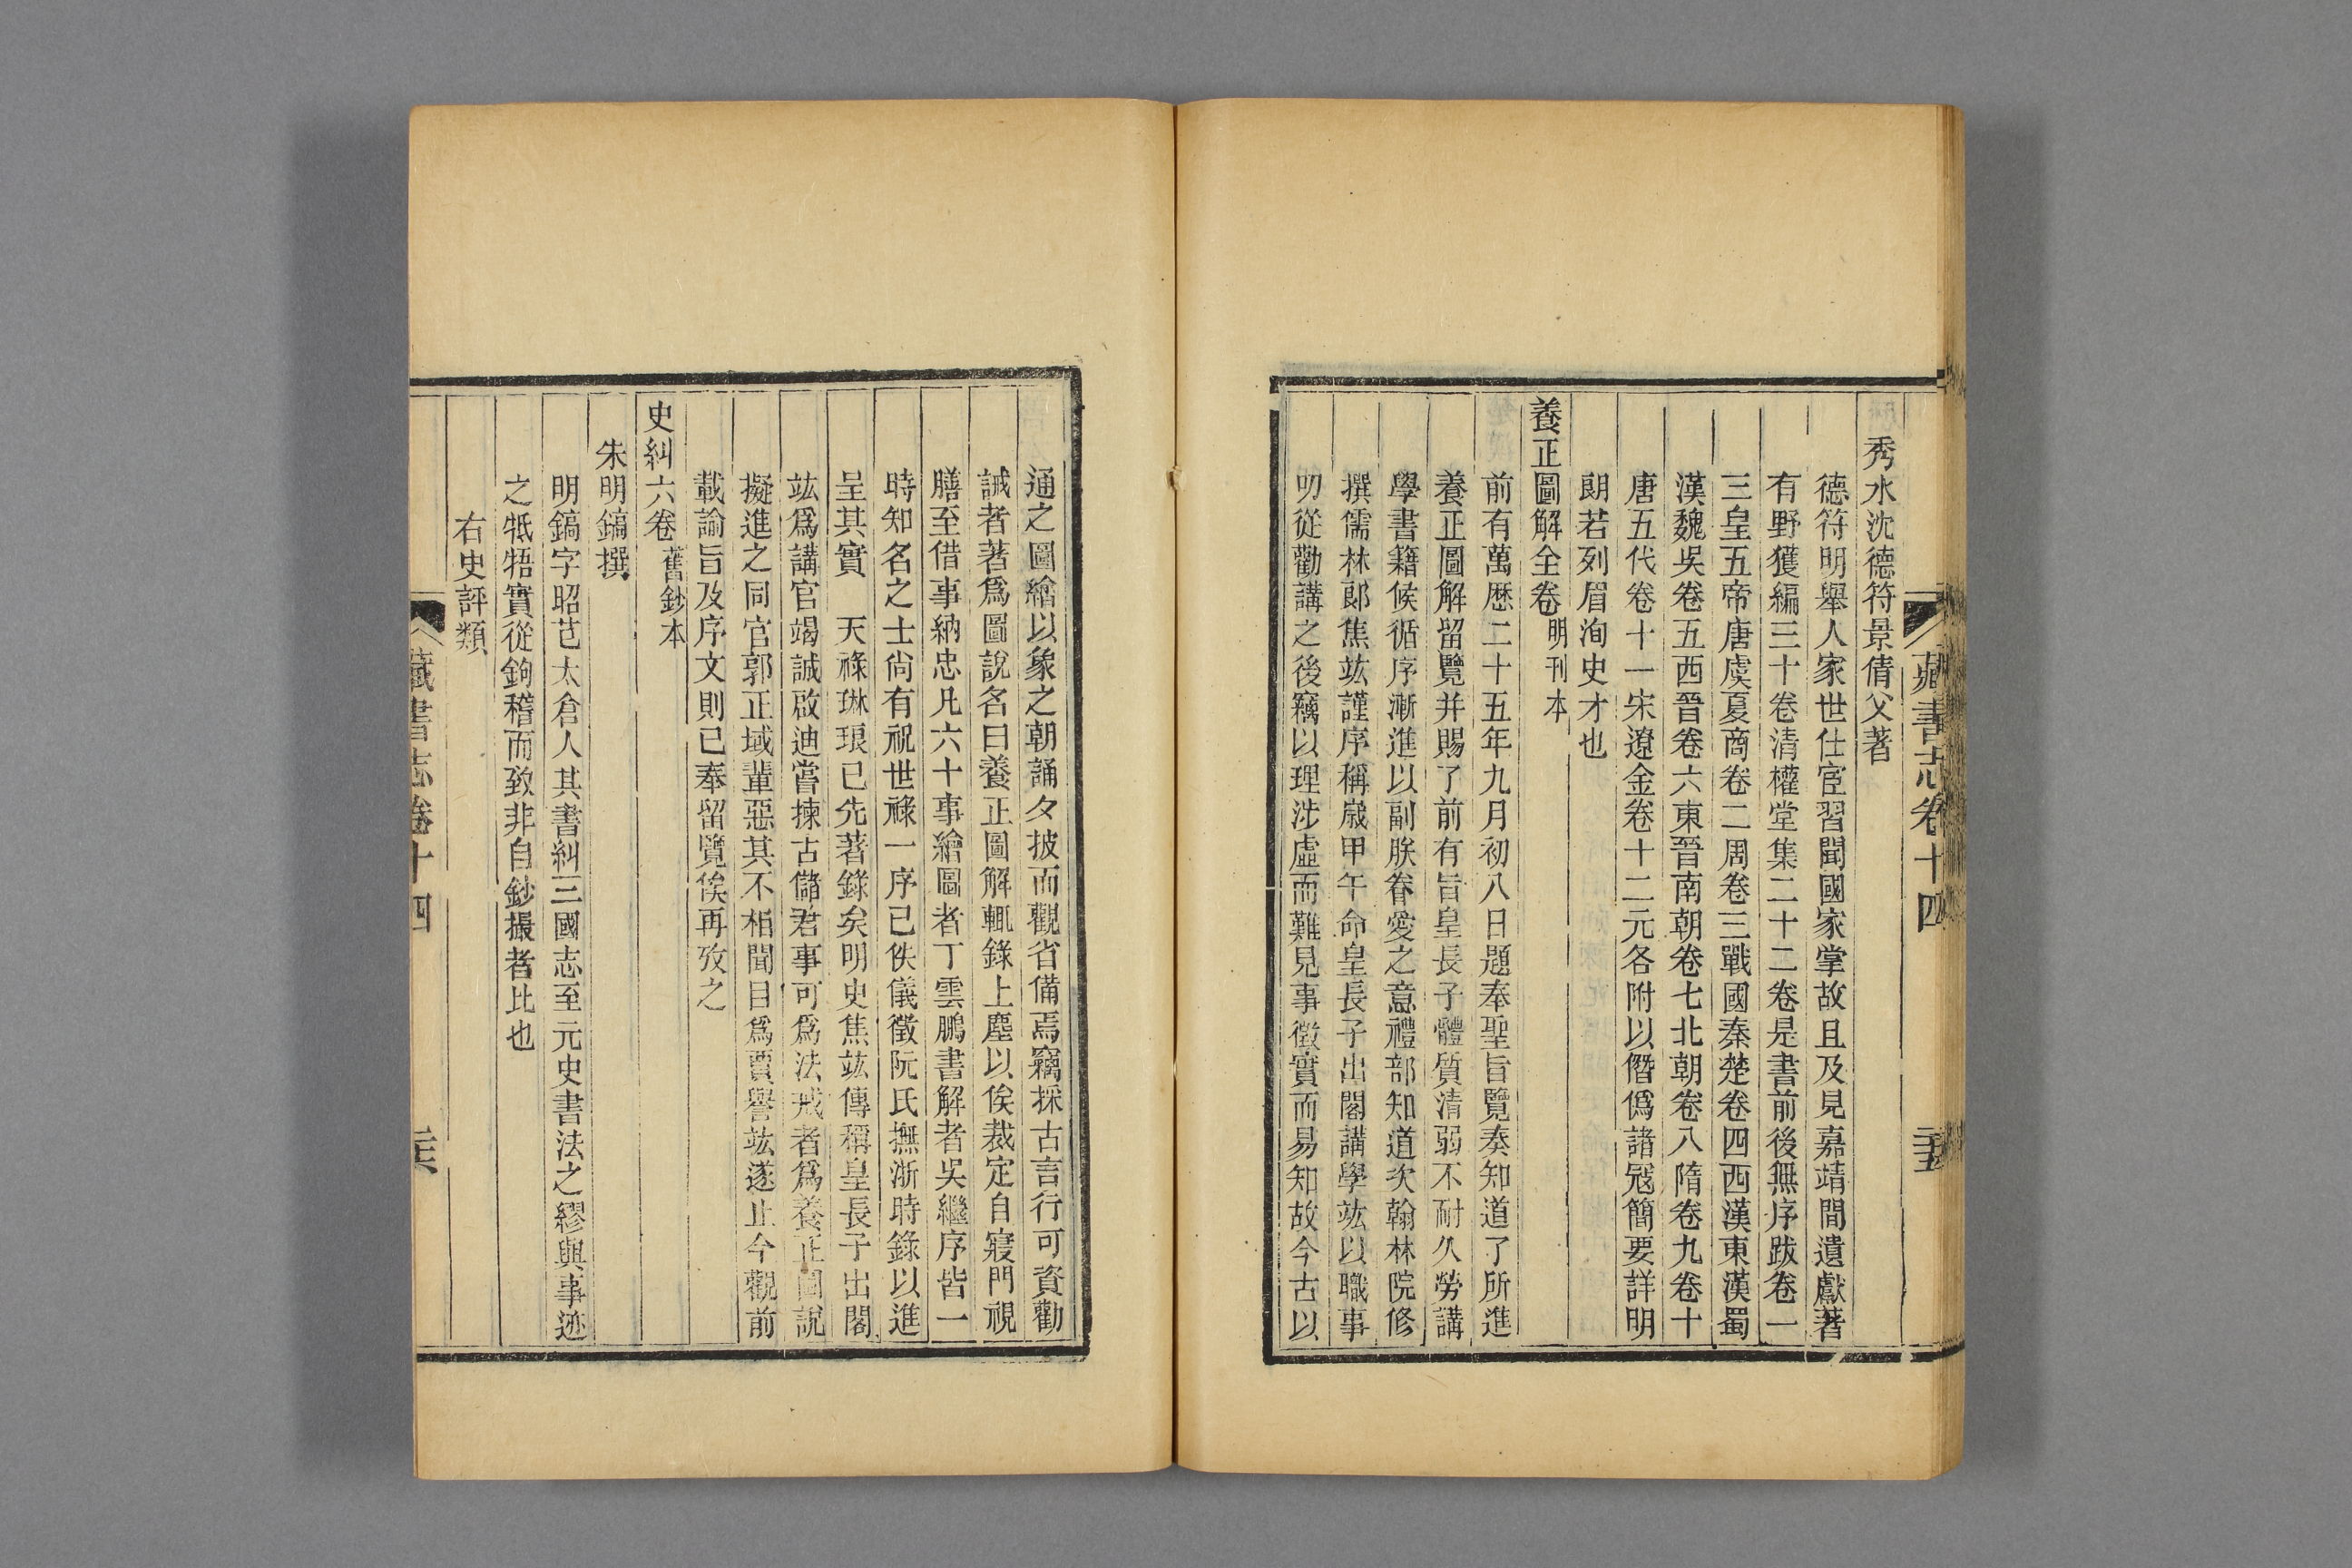 藏書志卷十四
秀水沈德符景倩父著
德符明舉人家世仕宦習聞國家掌故且及見嘉靖間遺獻著
有野獲編三十卷清權堂集二十二卷是書前後無序跋卷一
三皇五帝唐虞夏商卷二周卷三戰國秦楚卷四西漢東漢蜀
漢魏吳卷五西晉卷六東晉南朝卷七北朝卷八隋卷九卷十
唐五代卷十一宋遼金卷十二元各附以僭僞諸冦簡要詳明
朗若列眉洵史才也
養正圖解全卷明刊本
前有萬歷二十五年九月初八日題奉聖旨覽奏知道了所進
養正圖解留覽并賜了前有旨皇長子體質清弱不耐久勞講
學書籍候循序漸進以副朕眷愛之意禮部知道次翰林院修
撰儒林郎焦竑謹序稱歲甲午命皇長子出閣講學竑以職事
叨從勸講之後竊以理涉虛而難見事徵實而易知故今古以
通之圖繪以象之朝誦夕披而觀省備焉竊採古言行可資勸
誡者著爲圖說名曰養正圖解輒錄上塵以俟裁定自寢門視
膳至借事納忠凡六十事繪圖者丁雲鵬書解者吳繼序皆一
時知名之士尙有祝世祿一序已佚儀徵阮氏撫浙時錄以進
呈其實　天祿琳琅已先著錄矣明史焦竑傳稱皇長子出閣
竑爲講官竭誠啟迪嘗揀古儲君事可爲法戒者爲養正圖說
擬進之同官郭正域輩惡其不相聞目爲賈譽竑遂止今觀前
載諭旨及序文則已奉留覽俟再攷之
史糾六卷舊鈔本
朱明鎬撰
明鎬字昭芑太倉人其書糾三國志至元史書法之繆與事迹
之牴牾實從鉤稽而致非自鈔撮者比也
右史評類
藏書志卷十四